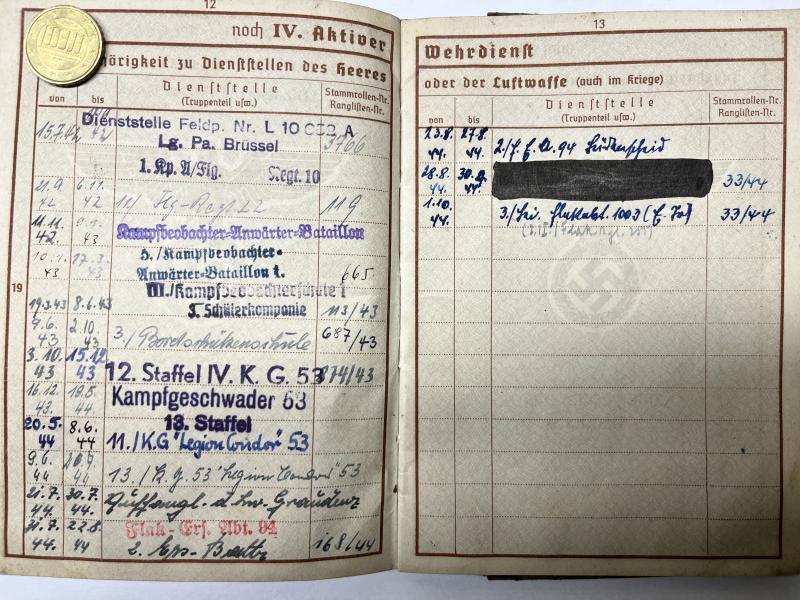 12
noch IV. Aktiver
hörigkeit zu Dienststellen des Heeres
von
bis
Dienststelle
(Truppenteil usw.)
Stammrollen-Nr.
Ranglisten-Nr.
19
15.7.42
42
Dienststelle Feldp. Nr. L 10 A
Lg. Pa. Brüssel
1. Kp. Flg. Regt. 10
3766
21.9.
42
6.11.
42
119
11.11.
42.
43
Kampfbeobachter-Anwärter-Bataillon
43
17.3.
43
5./Kampfbeobachter-
Anwärter-Bataillon 1.
665
19.3.43
8.6.43
III./Kampfbeobachterschule 1
3. Schülerkompanie
113/43
9.6.
43
2.10.
43
3./Bordschützenschule
687/43
3.10.
43
15.12.
43
12. Staffel IV. K. G. 53
874/43
16.12.
43.
19.5.
44.
Kampfgeschwader 53
13. Staffel
20.5.
44
8.6.
44
11./KG "Legion Condor" 53
9.6.
44
44
13./K.G. 53 "Legion Condor" 53
21.7.
44.
30.7.
44.
Auffangl. Graudenz
31.7.
44.
22.8.
44
Flak-Ers. Abt. 94
2. Ers. Battr
168/44
13
Wehrdienst
oder der Luftwaffe (auch im Kriege)
von
bis
Dienststelle
(Truppenteil usw.)
Stammrollen-Nr.
Ranglisten-Nr.
23.8.
44.
27.8.
44.
94 Lüdenscheid
28.8.
44.
44.
33/44
1.10.
44.
3./ Flakabt. 1003
33/44